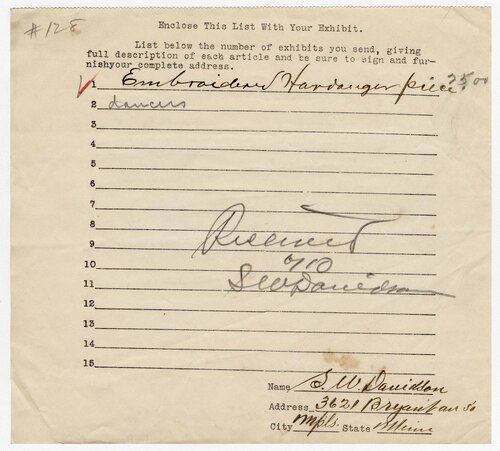 #128
Enclose This List With Your Exhibit.
List below the number of exhibits you send, giving
full description of each article and be sure to sign and fur-
nishyour complete address.
1 Embroidered Hardanger piece 35.00
2 dancers
3
4
5
6
7
8
9
10
11
12
13
14
15
Received
S W Davidson
Name S. W. Davidson
Address 3621 Bryant av So
City Mpls. State Minn